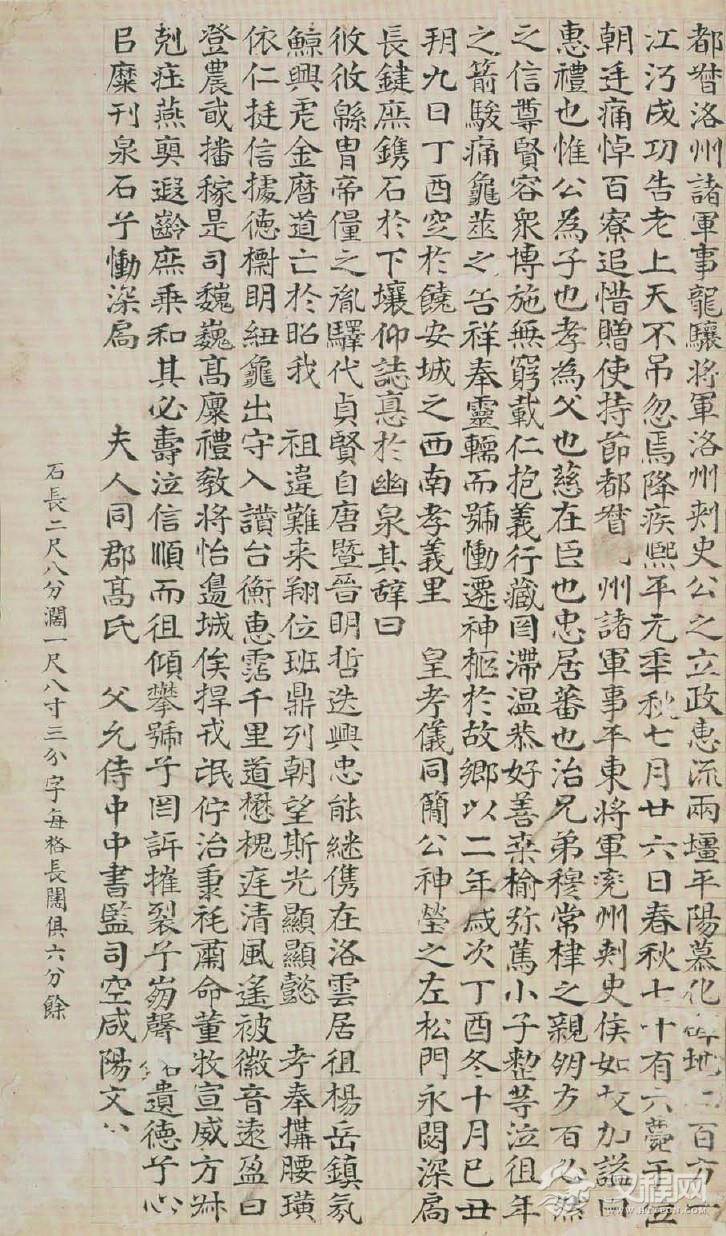 都督洛州諸軍事龍驤將軍洛州刾史公之立政惠流兩壃平陽慕化地二百方
江沔成功告老上天不弔忽焉降疾熙平元年秋七月廿六日春秋七十有六薨于位
朝廷痛悼百寮追惜贈使持節都督州諸軍事平東將軍兖州刾史侯如故加謚曰
惠禮也惟公為子也孝為父也慈在臣也忠居蕃也治兄弟穆常棣之親朋方百必然
之信尊賢容衆博施無窮載仁抱義行藏罔滯温恭好善桒榆弥篤小子整等泣徂年
之箭駿痛龜筮之告祥奉靈輀而號慟遷神柩於故鄉以二年歲次丁酉冬十月己丑
朔九日丁酉窆於饒安城之西南孝義里　皇考儀同簡公神塋之左松門永閟深扃
長鍵庶鐫石於下壤仰誌惪於幽泉其辭曰
攸攸緜胄帝僮之胤驛代貞賢自唐暨晉明哲迭興忠能継儁在洛雲居徂楊岳鎮氛
鯨興虐金曆道亡於昭我　祖違難来翔位班鼎列朝望斯光顯顯懿　考奉搆腰璜
依仁挺信據德明紐龜出守入讃台衡惠霑千里道懋槐庭清風遙被徽音遠盈曰
登農或播稼是司魏巍高廩禮教將怡邊城俟捍戎氓佇治秉旄肅命董牧宣威方
剋在燕奭遐齡庶乗和其必壽泣信順而徂傾攀號兮罔訴摧裂兮崩聲銘遺德兮心
㠯糜刊泉石兮慟深扃　夫人同郡高氏　父允侍中中書監司空咸陽文公
石長二尺八分濶一尺八寸三分字每格長闊俱六分餘